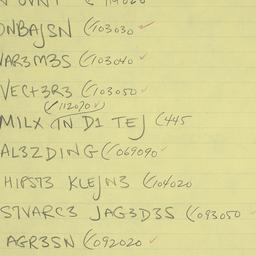 ONBAJSN (103030 ✓
VAR3M3S (103040 ✓
VEC+3R3 (103050 ✓
(112070 ✓)
MILX IN D1 TEJ (445
AL3ZDING (069090 ✓
HIPST3 KLEJN3 (104020
STVARC3 JAG3D3S (093050 ✓
AGR3SN (092020 ✓